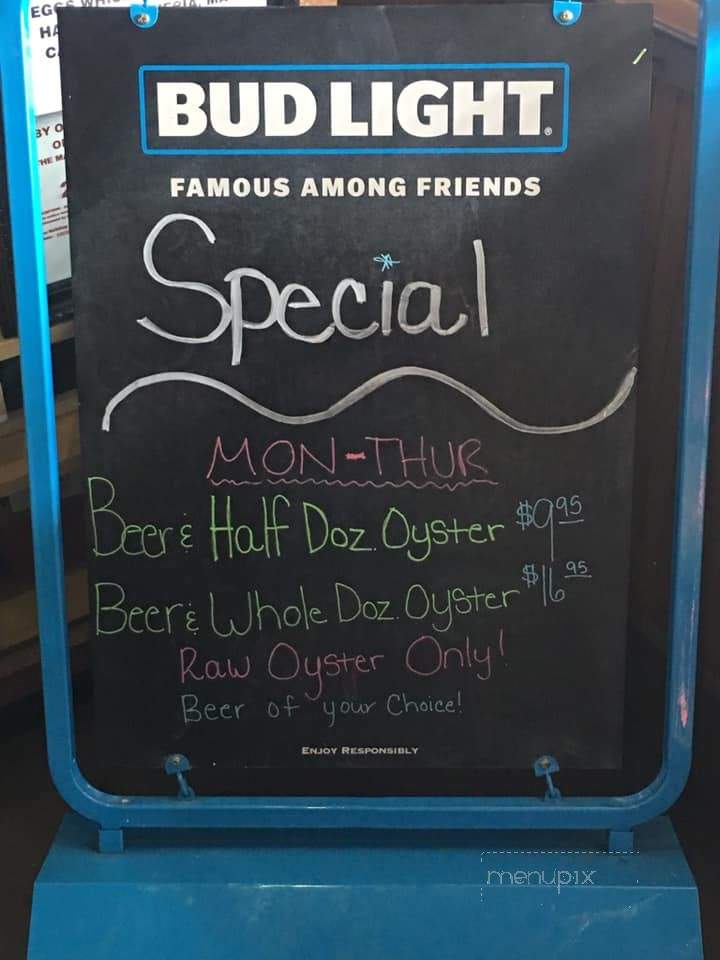 EGGS
HA
BY O
THE M
BUD LIGHT®
FAMOUS AMONG FRIENDS
Special
MON-THUR
Beer & Half Doz. Oyster $9.95
Beer & Whole Doz. Oyster $16.95
Raw Oyster Only!
Beer of your Choice!
ENJOY RESPONSIBLY
menupix